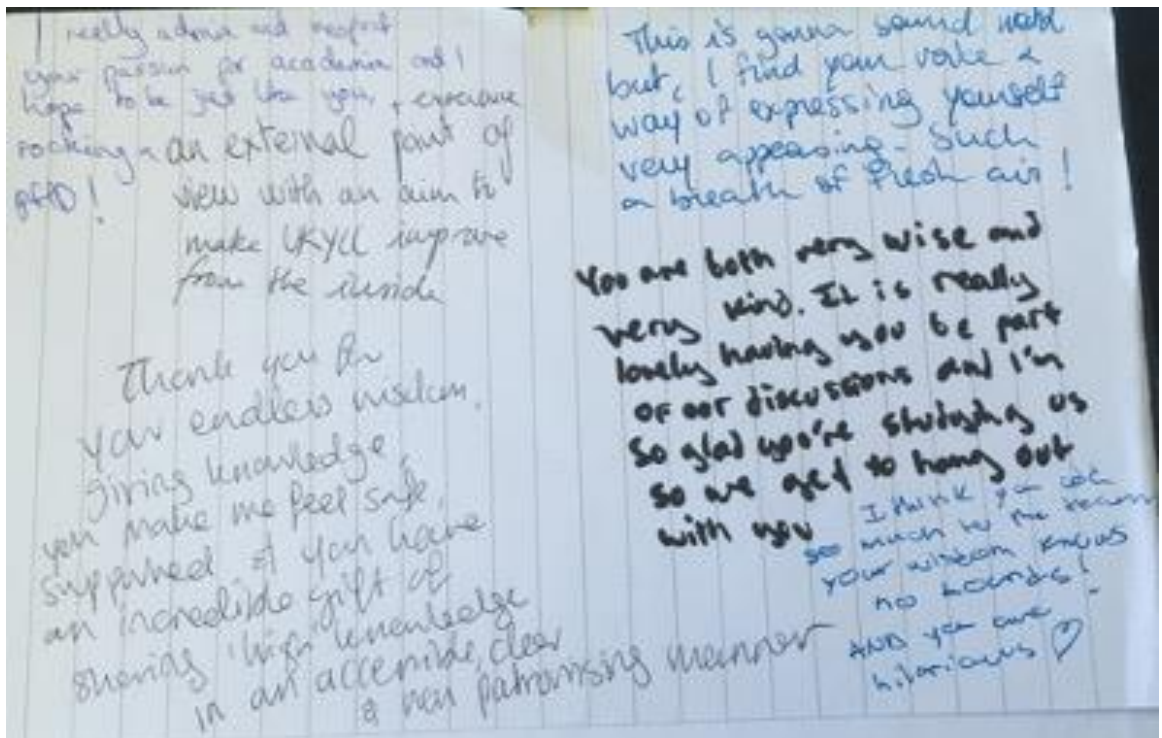 I really admire and respect
your passion for academia and I
hope to be just like you,
rocking a
PHD!
experience
an external point of
view with an aim to
make UKYCC improve
from the inside
Thank you for
your endless wisdom,
giving knowledge,
you make me feel safe,
supported & you have
an incredible gift of
sharing 'high' knowledge
in an accessible, clear
& non patronising manner
This is gonna sound weird
but, I find your voice &
way of expressing yourself
very appeasing. Such
a breath of fresh air!
You are both very wise and
very kind. It is really
lovely having you be part
of our discussions and I'm
so glad you're studying us
so we get to hang out
with you
I think you add
so much to the team
your wisdom knows
no bounds!
AND you are
hilarious ♡